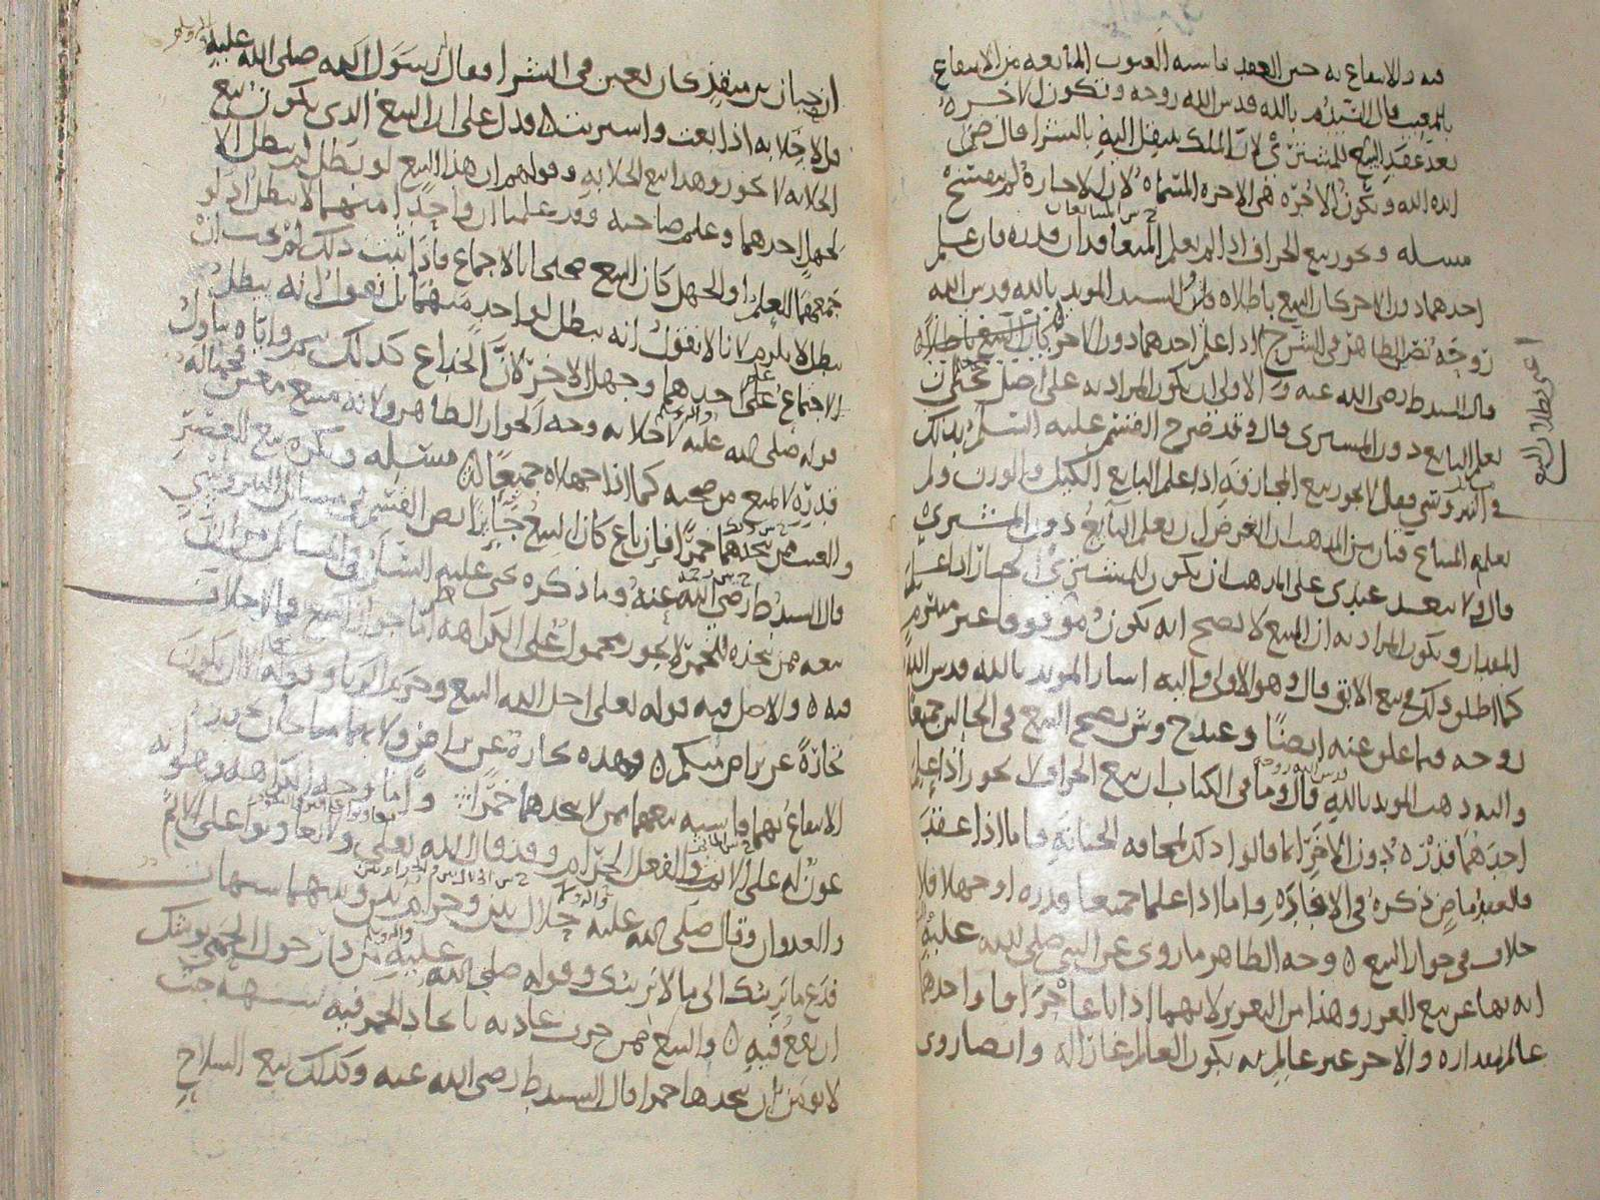 فيه والانتفاع به حين العقد فاشبه العيوب المانعه من الانتفاع
بالمعيب قال السيد م بالله قدس الله روحه وتكون الاجره
بعد عقد البيع للمشتري لان الملك ينتقل اليه بالشرا قال رضي
ايده الله وتكون الاجره هي الاجره المسماه لان الاجاره لم تنفسخ
مسله ويجوز بيع الجزاف اذا لم يعلم المتبايعان قدره فان علم
احدهما دون الاخر كان البيع باطلا قال السيد المويد بالله قدس الله
روحه نص الظاهر في الشرح اذا علم احدهما دون الاخر كان البيع باطلا
قال السيد ط رضي الله عنه والاولى ان يكون المراد به على اصل يحيى ان
يعلم البايع دون المشتري قال وقد صرح القسم عليه السلم بذلك
في النيروسي فقال لا يجوز بيع المجازفه اذا علم البايع الكيل والوزن ولم
يعلم المبتاع فبان من المذهب ان الغرض ان يعلم البايع دون المشتري
قال ولا يبعد عندي على المذهب ان يكون للمشتري الخيار اذا علم
المقدار ويكون المراد به ان البيع لا يصح انه يكون موقوفا غير مبرم
كما اطلق ذلك في بيع الابق قال وهو الاولى واليه اشار المويد بالله قدس الله
روحه فيما علق عنه ايضا وعند ح وش يصح البيع في الحالين جميعا
واليه ذهب المويد بالله قال وما في الكتاب ان بيع الجزاف لا يجوز اذا علم
احدهما قدره دون الاخر انما قالوا ذلك لمخافه الخيانه فاما اذا عقد
فالعبد ماض ذكره في الافاده واما اذا علما جميعا قدره او جهلا فلا
خلاف في جواز البيع وجه الظاهر ما روي عن النبي صلى الله عليه
انه نها عن بيع الغرر وهذا من الغرر لانهما اذا باعا جزافا واحدهما
عالم بمقداره والاخر غير عالم به يكون العالم غارا له وايضا روي
اعني بطلان البيع
ان حبان بن منقذ كان يغبن في الشرا فقال رسول الله صلى الله عليه
قل لا خلابه اذا بعت واشتريت فدل على ان البيع الذي يكون بيع
الخلابه لا يجوز وهذا بيع الخلابه وقولهم ان هذا البيع لو بطل لم يبطل الا
لجهل احدهما وعلم صاحبه وقد علمنا ان واحدا منهما لا يبطل اذ لو
جمعهما العلم او الجهل كان البيع صحيحا بالاجماع فاذا ثبت ذلك لم يجب ان
يبطل لا يلزم لانا لا نقول انه يبطل لواحد منهما بل نقول انه يبطل
لاجتماع علم احدهما وجهل الاخر لان الخداع كذلك
قوله صلى الله عليه لا خلابه وجه الجواز الظاهر ولانه مبيع معين
قدره لا يمنع من صحته كما اذا جهلاه جميعا مسله ويكره بيع العصير
والعنب ممن يتخذهما خمرا فان باع كان البيع جايزا نص القسم في مسايل النيروسي
قال السيد ط رضي الله عنه وما ذكره يحيى عليه السلم
بيعه ممن يتخذه للخمر لا يجوز محمول على الكراهه اما جواز البيع فلا خلاف
فيه والاصل فيه قوله تعالى احل الله البيع وحرم الربا وقوله الا ان تكون
تجارة عن تراض منكم وهذه تجارة عن تراض ولانهما مما يجوز
الانتفاع بهما فاشبه بيعهما ممن لا يتخذهما خمرا واما وجه الكراهه فهو انه
عون له على الاثم والفعل الحرام وقد قال الله تعالى ولا تعاونوا على الاثم
والعدوان وقال صلى الله عليه حلال بين وحرام بين وبينهما شبهات
فدع ما يريبك الى ما لا يريبك وقوله صلى الله عليه من دار حول الحمى يوشك
ان يقع فيه والبيع ممن جرت عادته باتخاذ الخمر فيه شبهه
لا يومن ان يتخذها خمرا قال السيد ط رضي الله عنه وكذلك بيع السلاح